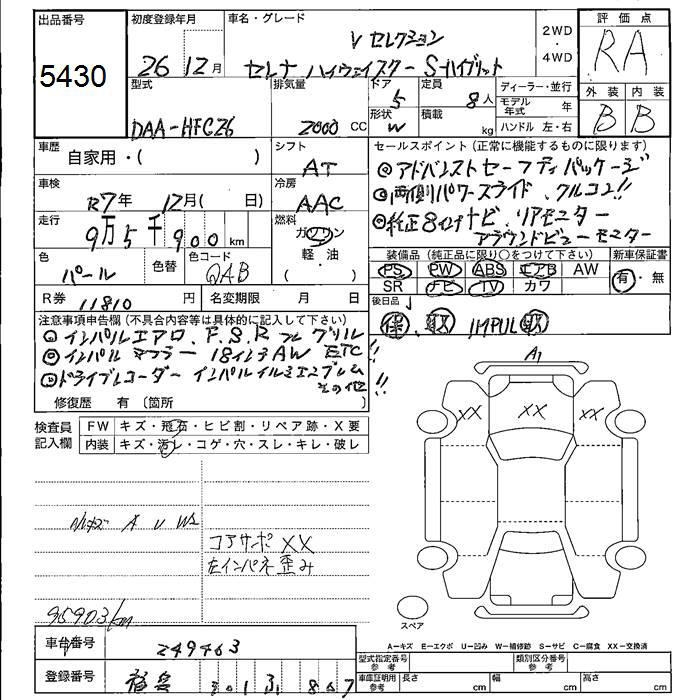 出品番号
5430
初度登録年月
26 12月
車名・グレード
V セレクション
セレナ ハイウェイスター S-ハイブリット
2WD
・
4WD
評価点
RA
外装 内装
B B
型式
DAA-HFC26
排気量
2000 CC
ドア
5
形状
W
定員
8人
積載
kg
ディーラー・並行
モデル年式 年
ハンドル 左・右
車歴
自家用・( )
シフト
AT
車検
R7年 12月( 日)
冷房
AAC
走行
9万5千900km
燃料
ガソリン
軽・油
色
パール
色替
色コード
QAB
( )
R券 11810 円
名変期限 月 日
セールスポイント (正常に機能するものに限ります)
◎アドバンストセーフティパッケージ
◎両側パワースライド、クルコン!!
◎純正8インチナビ、リアモニター
アラウンドビューモニター
装備品 (純正品に限り○をつけて下さい)
PS PW ABS エアB AW
SR ナビ TV カワ
新車保証書
有・無
後日品
保、取 IMPUL取
注意事項申告欄 (不具合内容等は具体的に記入して下さい)
◎インパルエアロ、F.S.R フログリル
◎インパルマフラー 18インチAW ETC!!
◎ドライブレコーダー インパルイルミエンブレム
その他!!
修復歴 有 (箇所 )
検査員
記入欄
FW キズ・飛石・ヒビ割・リペア跡・X要
内装 キズ・汚れ・コゲ・穴・スレ・キレ・破レ
A1
XX XX XX
A U W2
コアサポ XX
左インパネ歪み
95903km
スペア
A=キズ E=エクボ U=凹み W=補修跡 S=サビ C=腐食 XX=交換済
車台番号 249463
登録番号
301 ふ 807
型式指定番号
参考
類別区分番号
参考
車庫証明用
参考
長さ cm
幅 cm
高さ cm